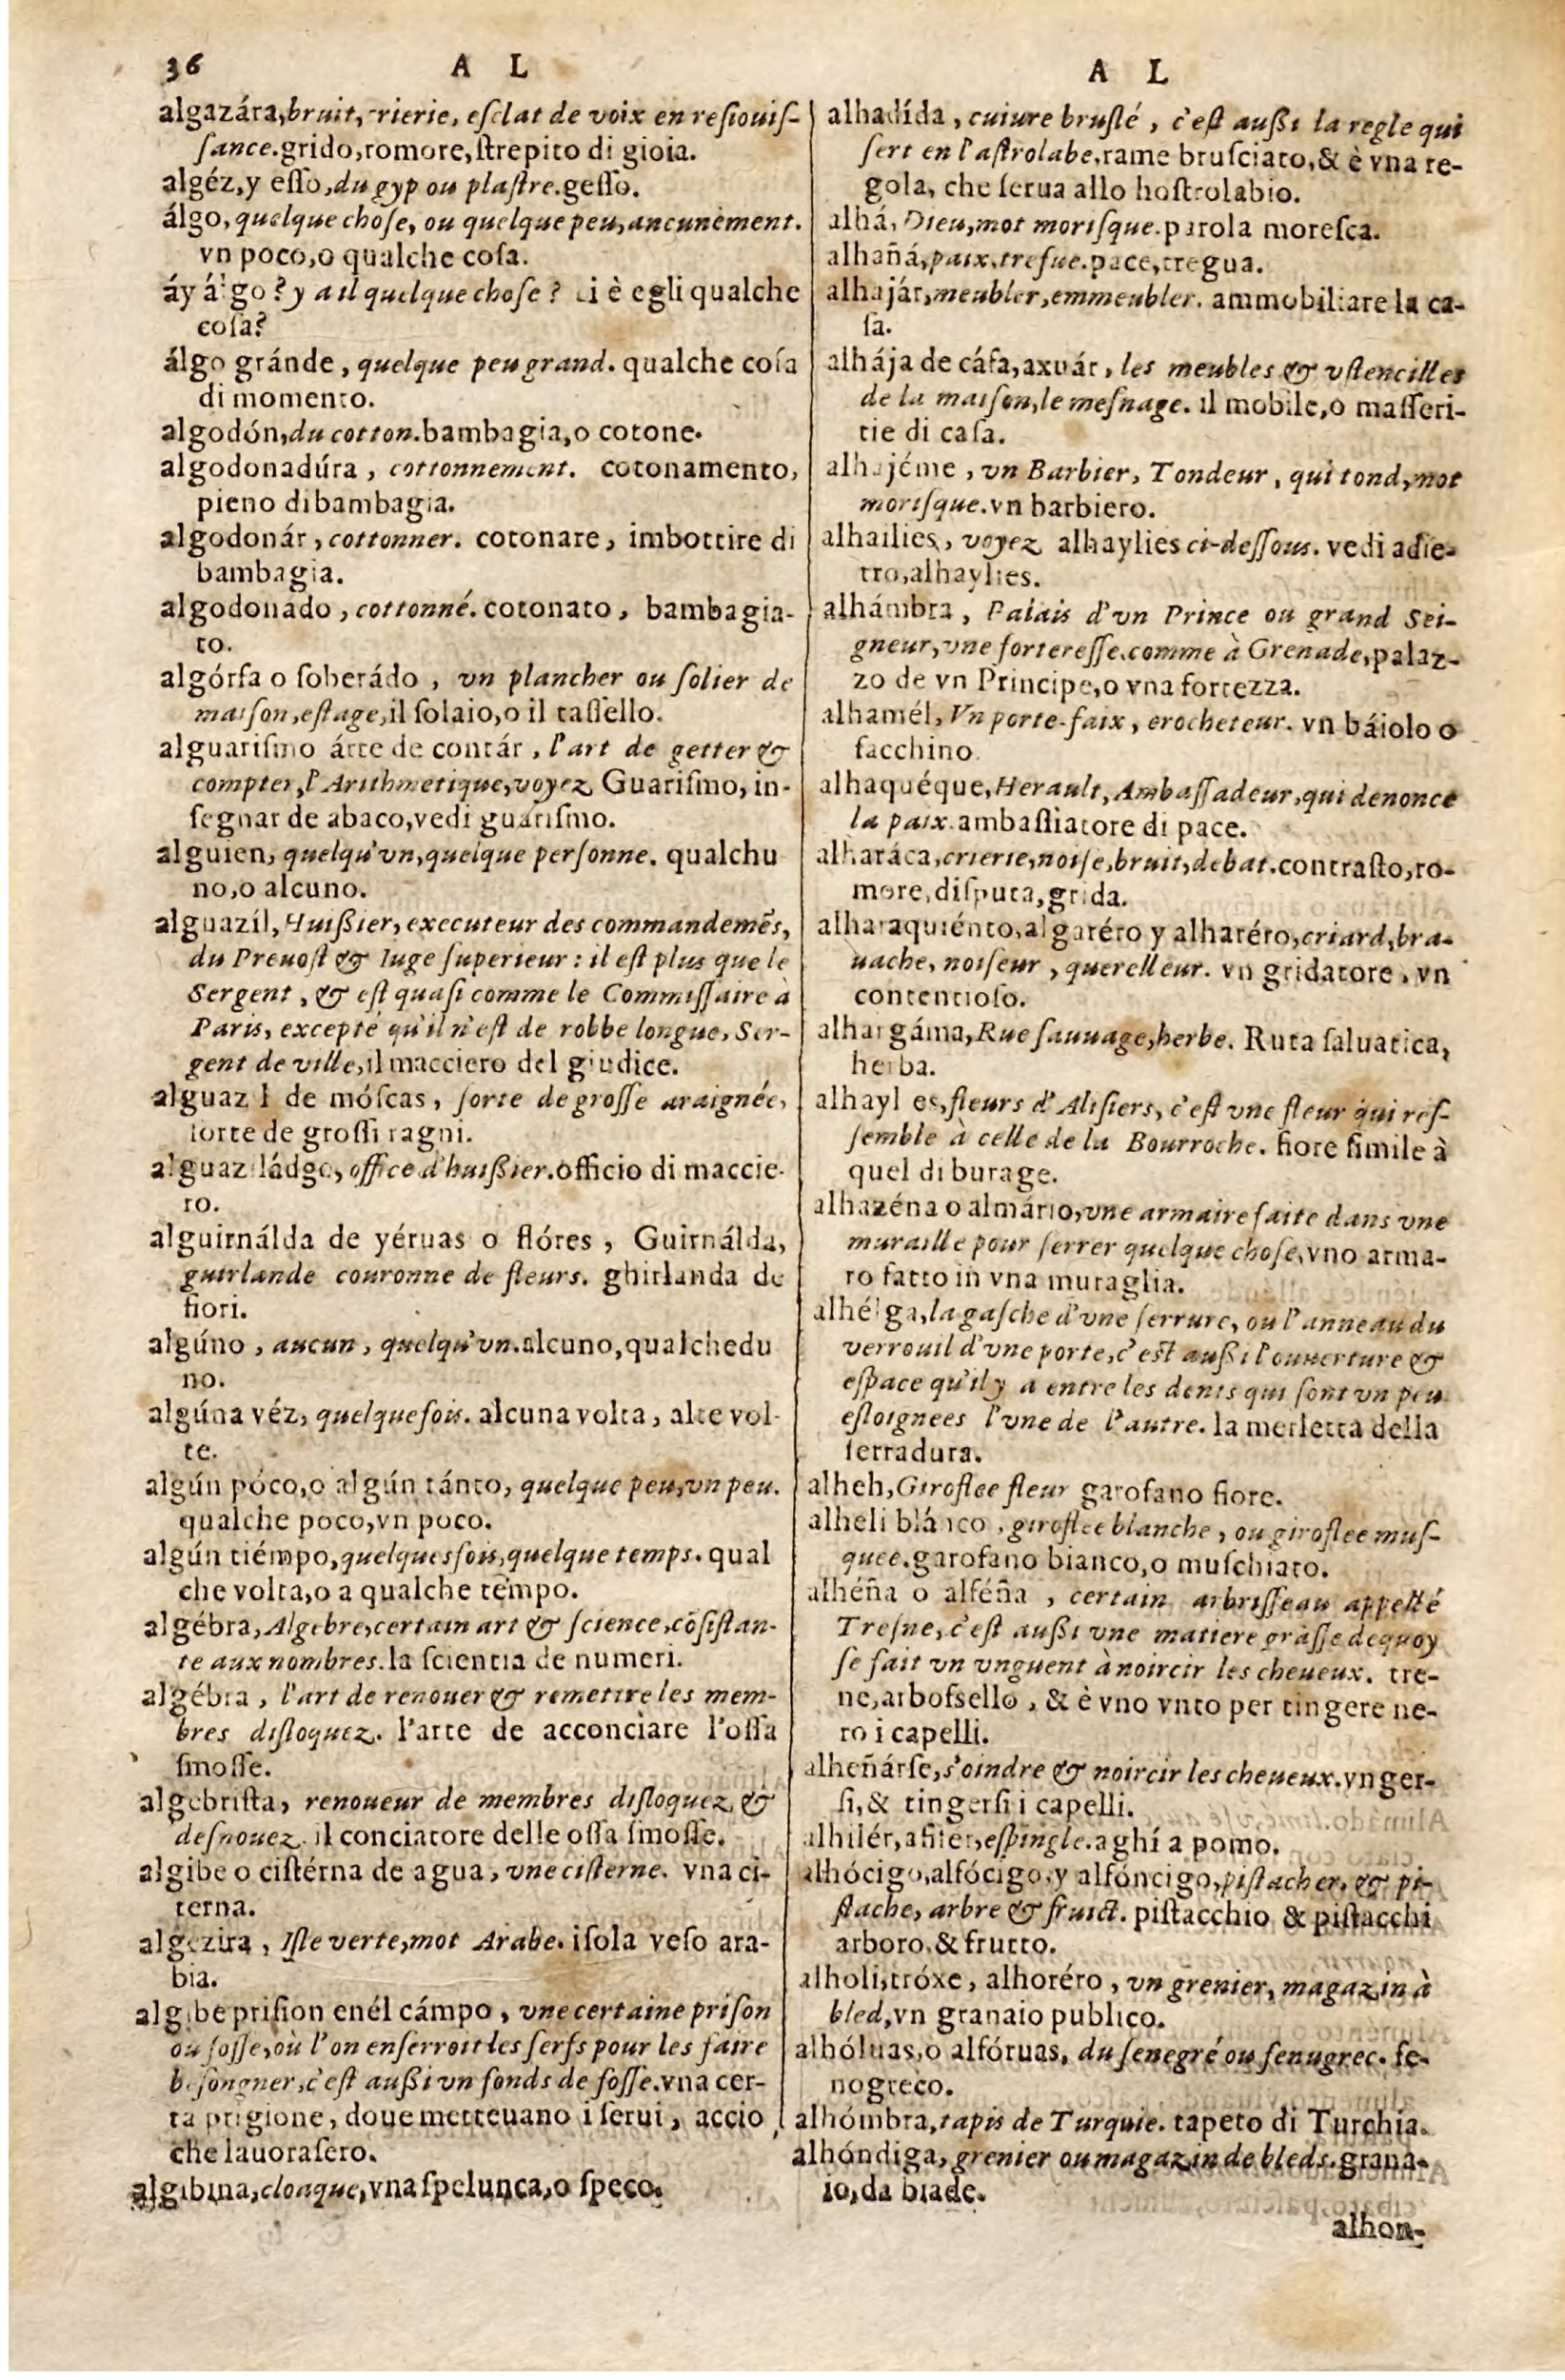 36 A L
algazára, bruit, crierie, esclat de voix en resiouis-
ſance. grido, romore, ſtrepito di gioia.
algéz, y eſſo, du gyp ou plaſtre. geſſo.
álgo, quelque choſe, ou quelque peu, aucunement.
vn poco, o qualche coſa.
áy álgo? y a il quelque choſe? ci è egli qualche
coſa?
álgo gránde, quelque peu grand. qualche coſa
di momento.
algodón, du cotton. bambagia, o cotone.
algodonadúra, cottonnement. cotonamento,
pieno di bambagia.
algodonár, cottonner. cotonare, imbottire di
bambagia.
algodonado, cottonné. cotonato, bambagia-
to.
algórfa o ſoberádo, vn plancher ou ſolier de
maiſon, eſtage, il ſolaio, o il taſſello.
alguariſmo árte de contár, l'art de getter &
compter, l'Arithmetique, voyez Guariſmo, in-
ſegnar de abaco, vedi guariſmo.
alguien, quelqu'vn, quelque perſonne. qualchu
no, o alcuno.
alguazíl, Huißier, executeur des commandemẽs,
du Preuoſt & Iuge ſuperieur: il eſt plus que le
Sergent, & eſt quaſi comme le Commiſſaire à
Paris, excepté qu'il n'eſt de robbe longue, Ser-
gent de ville, il macciero del giudice.
alguazíl de móſcas, ſorte de groſſe araignée,
ſorte de groſſi ragni.
alguaziládgo, office d'huißier. officio di maccie-
ro.
alguirnálda de yéruas o flóres, Guirnálda,
guirlande couronne de fleurs. ghirlanda de
fiori.
algúno, aucun, quelqu'vn. alcuno, qualchedu
no.
algúna véz, quelque fois. alcuna volta, alte vol-
te.
algún póco, o algún tánto, quelque peu, vn peu.
qualche poco, vn poco.
algún tiémpo, quelques fois, quelque temps. qual
che volta, o a qualche tempo.
algébra, Algebre, certain art & ſcience, cõſiſtan-
te aux nombres. la ſcientia de numeri.
algébra, l'art de renouer & remettre les mem-
bres diſloquez. l'arte de acconciare l'oſſa
ſmoſſe.
algebriſta, renoueur de membres diſloquez &
deſnouez. il conciatore delle oſſa ſmoſſe.
algibe o ciſtérna de agua, vne ciſterne. vna ci-
terna.
algezira, Iſle verte, mot Arabe. iſola veſo ara-
bia.
algibe priſion enél cámpo, vne certaine priſon
ou foſſe, où l'on enſerroit les ſerfs pour les faire
beſongner, c'eſt außi vn fonds de foſſe. vna cer-
ta prigione, doue metteuano i ſerui, accio
che lauoraſero.
algibina, cloaque, vna ſpelunca, o ſpeco.
A L
alhadída, cuiure bruſlé, c'eſt außi la regle qui
ſert en l'aſtrolabe, rame bruſciato, & è vna re-
gola, che ſerua allo hoſtrolabio.
alhá, Dieu, mot moriſque. parola moreſca.
alhañá, paix, treſue. pace, tregua.
alhajár, meubler, emmeubler. ammobiliare la ca-
ſa.
alhája de cáſa, axuár, les meubles & vſtencilles
de la maiſon, le meſnage. il mobile, o maſſeri-
tie di caſa.
alhajéme, vn Barbier, Tondeur, qui tond, mot
moriſque. vn barbiero.
alhailies, voyez alhaylies ci-deſſous. vedi adie-
tro, alhaylies.
alhámbra, Palais d'vn Prince ou grand Sei-
gneur, vne fortereſſe, comme à Grenade, palaz-
zo de vn Principe, o vna fortezza.
alhamél, Vn porte-faix, crocheteur. vn báiolo o
facchino.
alhaquéque, Herault, Ambaſſadeur, qui denonce
la paix. ambaſtiatore di pace.
alharáca, crierie, noiſe, bruit, debat. contraſto, ro-
more, diſputa, grida.
alharaquiénto, algaréro y alharéro, criard, bra-
uache, noiſeur, querelleur. vn gridatore, vn
contentioſo.
alhargáma, Rue ſauuage, herbe. Ruta ſaluatica,
herba.
alhaylies, fleurs d'Aliſiers, c'eſt vne fleur qui reſ-
ſemble à celle de la Bourroche. fiore ſimile à
quel di burage.
alhazéna o almário, vne armaire faite dans vne
muraille pour ſerrer quelque choſe, vno arma-
ro fatto in vna muraglia.
alhélga, la gaſche d'vne ſerrure, ou l'anneau du
verrouil d'vne porte, c'eſt außi l'ouuerture &
eſpace qu'il y a entre les dents qui ſont vn peu
eſloignees l'vne de l'autre. la merletta della
ſerradura.
alheh, Giroflee fleur garofano fiore.
alheli blánco, giroflee blanche, ou giroflee muſ-
quee. garofano bianco, o muſchiato.
alhéña o alféña, certain arbriſſeau appellé
Treſne, c'eſt außi vne matiere graſſe dequoy
ſe fait vn vnguent à noircir les cheueux. tre-
ne, arboſsello, & è vno vnto per tingere ne-
ro i capelli.
alheñárſe, s'oindre & noircir les cheueux. vnger-
ſi, & tingerſi i capelli.
alhilér, afilér, eſpingle. aghí a pomo.
alhócigo, alfócigo, y alfóncigo, piſtacher, & pi-
ſtache, arbre & fruict. piſtacchio & piſtacchi
arboro. & frutto.
alholi, tróxe, alhoréro, vn grenier, magazin à
bled, vn granaio publico.
alhóluas, o alfóruas, du ſenegré ou fenugrec. fe-
nogreco.
alhómbra, tapis de Turquie. tapeto di Turchia.
alhóndiga, grenier ou magazin de bleds. grana-
io, da biade.
alhon-